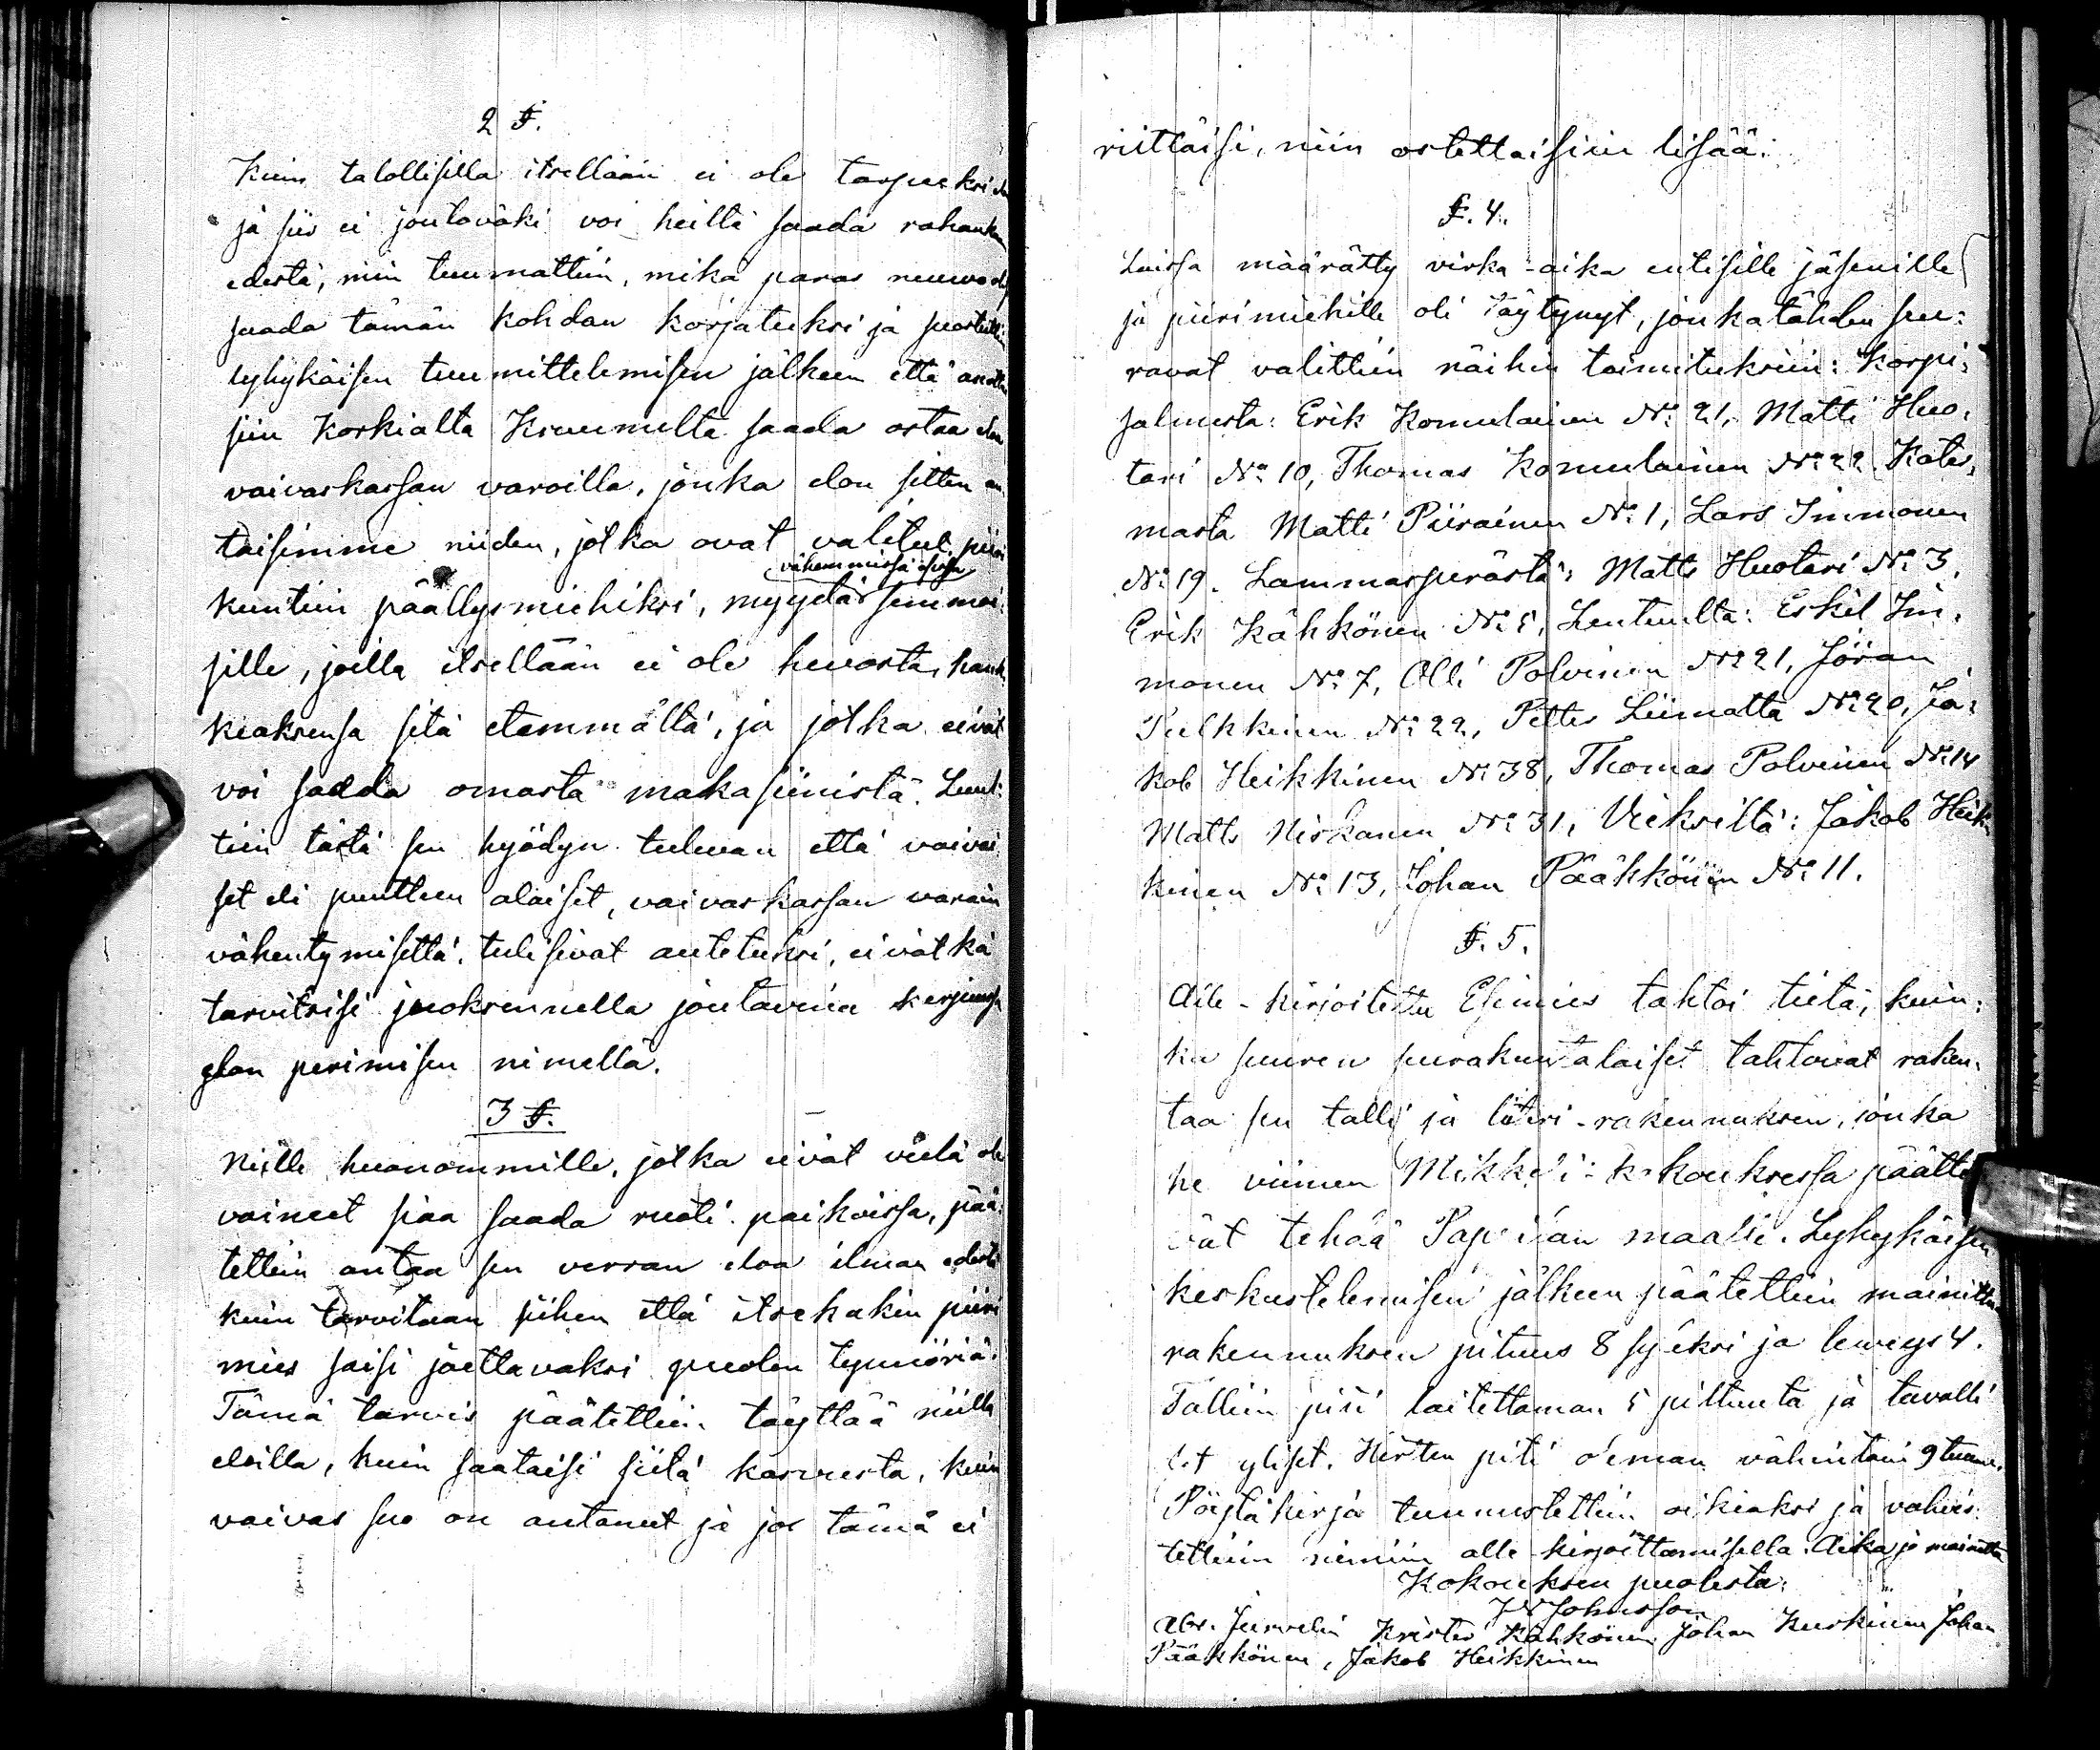 2 §.
Kuin talollisilla itsellään ei ole tarpeeksi
ja siis ei joutoväki voi heiltä saada rahankan
edestä, niin tuumattiin, mikä paras neuwo olisi
saada tämän kohdan korjatuksi ja suostuttiin
lyhykäisen tuumittelemisen jälkeen että anottai
siin Korkialta Kruunulta saada ostaa eloa
vaivaskassan varoilla, jonka elon sitten an-
taisimme niiden, jotka ovat valitut piiri
vähemmissä osissa
kuntiin päällysmiehiksi, myydä semmoi-
sille, joilla itsellään ei ole hevosta, hank
kiaksensa sitä etemmältä, ja jotka eivät
voi saada omasta makasiinista. Luul-
tiin tästä sen hyödyn tulevan että vaivai
set eli puutteen alaiset, vaivaskassan varain
vähentymisettä, tulisivat autetuksi, eivätkä
tarvitsisi juoksennella joutavina kerjuussa
elon perimisen nimellä.
3 §.
Niille huonommille, jotka eivät vielä ole
voineet siaa saada ruoti paikoissa, pää-
tettiin antaa sen verran eloa ilman edestä
kuin tarvitaan siihen että itsekukin piiri
mies saisi jaettavaksi puolen tynnöriä.
Tämä tarvis päätettiin täyttää niillä
eloilla, kuin saataisi siitä kasvusta, kuin
vaivas suo on antanut ja jos tämä ei
riittäisi, niin ostettaisiin lisää.
§. 4.
Laissa määrätty virka-aika entisille jäsenille
ja piirimiehille oli täytynyt, jonkatähden seu-
ravat valittiin näihin toimituksiin: Korpi-
salmesta: Erik Komulainen No 21, Matti Huo-
tari No 10, Thomas Komulainen No 22. Kate-
masta Matti Piirainen No 1, Lars Immonen
No 19. Lammasperästä: Matts Huotari No 3,
Erik Kähkönen No 5, Lentualta: Eskil Im-
monen No 7, Olli Polvinen No 21, Jöran
Pulkkinen No 22, Petter Liimatta No 20, Ja-
kob Heikkinen No 38, Thomas Polvinen No 14
Matts Niskanen No 31, Vieksiltä: Jakob Heik
kinen No 13, Johan Pääkkönen No 11.
§. 5.
Alle-kirjoitettu Esimies tahtoi tietä, kuin-
ka suuren seurakuntalaiset tahtovat raken-
taa sen talli ja liiteri-rakennuksen, jonka
he viimen Mikkeli-kokouksessa päätti
vät tehdä Pappilan maalle. Lyhykäisen
keskustelemisen jälkeen päätettiin mainittu
rakennuksen pituus 8 syleksi ja leveys 4.
Talliin piti laitettaman 5 pilttuuta ja tavalli
set yliset. Hirsten piti oleman vähintäin 9 tuum.
Pöytäkirja tunnustettiin oikiaksi ja vahvis-
tettiin nimiin alle-kirjoittamisella. Aika ja mainittu
Kokouksen puolesta:
J W Johnsson
Abr. Jurvelin Krister Kähkönen Johan Kurkinen Johan
Pääkkönen, Jakob Heikkinen